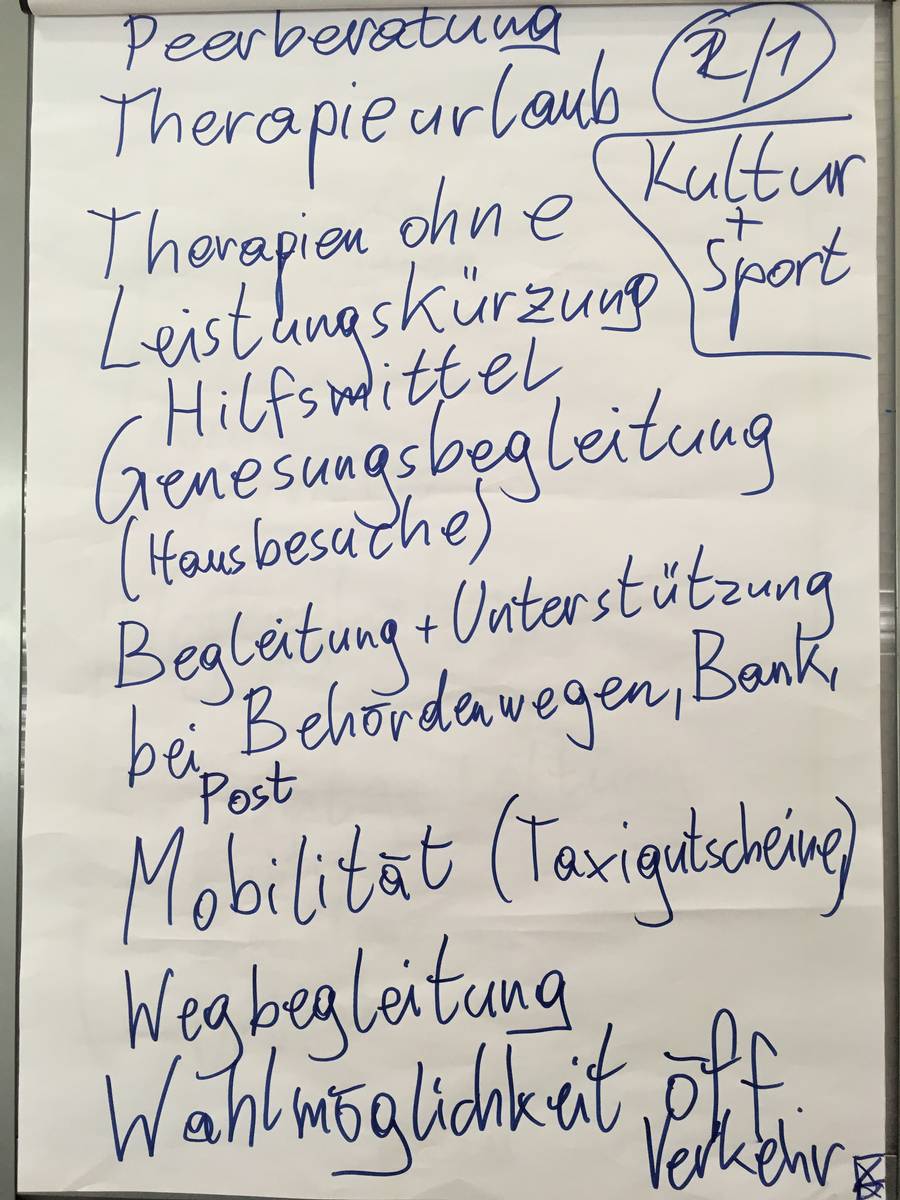 Peerberatung
2/1
Therapieurlaub
Kultur
+
Sport
Therapien ohne
Leistungskürzung
Hilfsmittel
Genesungsbegleitung
(Hausbesuche)
Begleitung + Unterstützung
bei Behördenwegen, Bank,
Post
Mobilität (Taxigutscheine)
Wegbegleitung
Wahlmöglichkeit öff
Verkehr